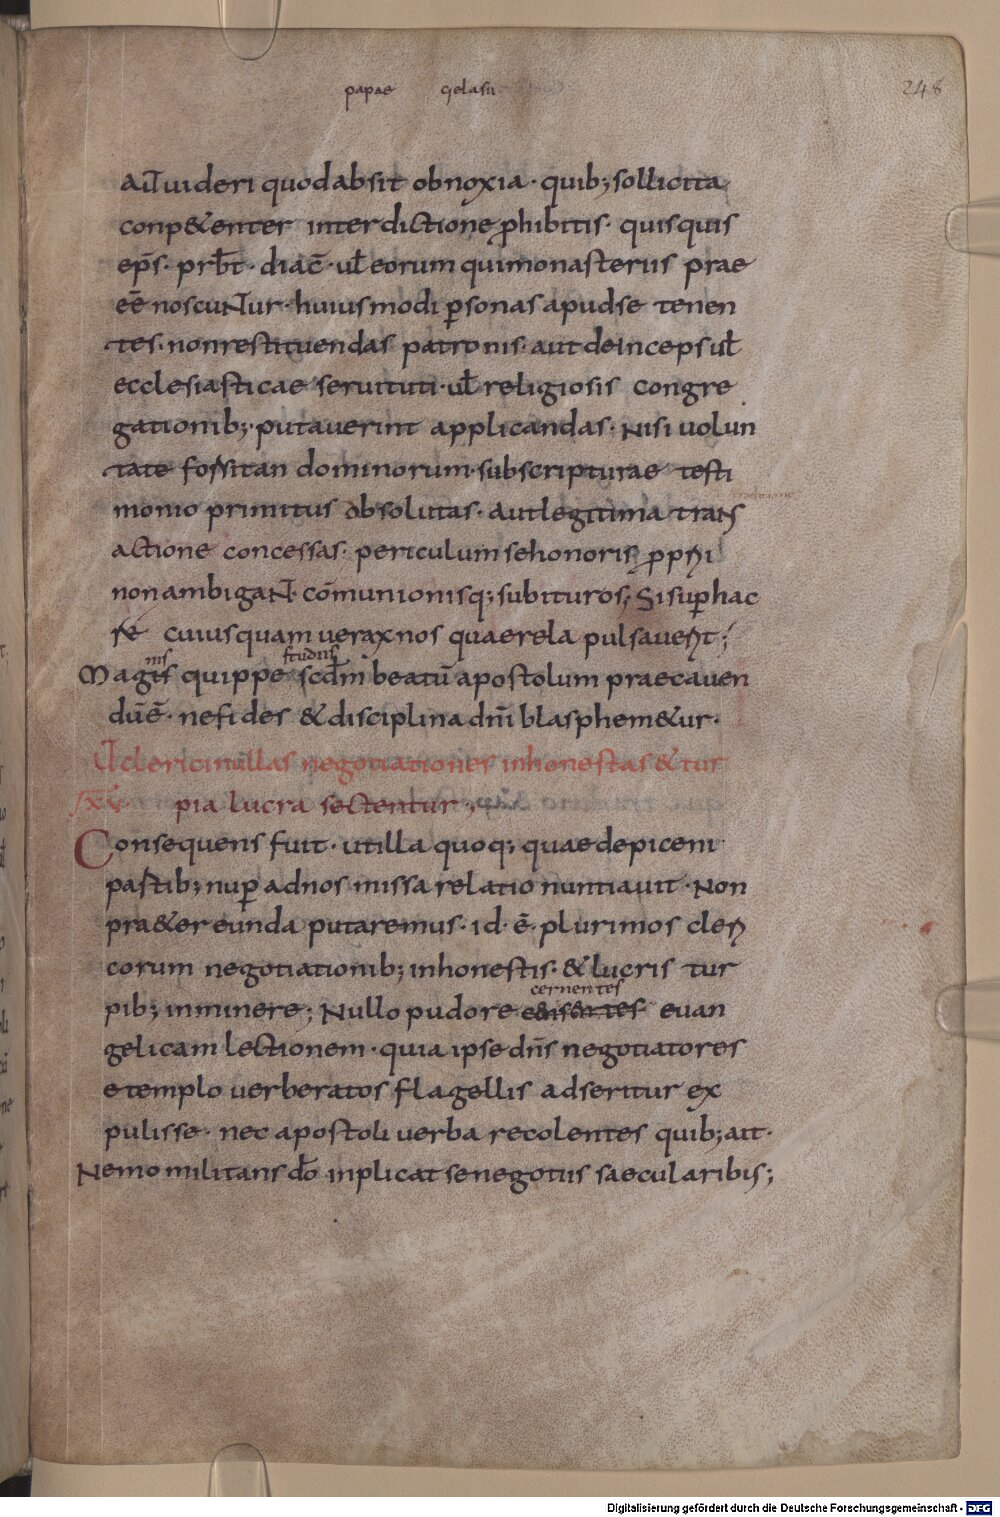 papae gelasii
248
aut uideri quod absit obnoxia · quib; sollicita
conp&enter interdictione phibitis · quisquis
eps̄ · prb̄t · diac̄ · ul̄ eorum qui monasteriis prae
eē noscuntur · huiusmodi p̱sonas apud se tenen
tes · non restituendas patronis · aut deinceps ul̄
ecclesiasticae seruituti · ul̄ religiosis congre
gationib; · putauerint applicandas · Nisi uolun
tate forsitan dominorum · subscripturae testi
monio primitus absolutas · aut legitima trans
actione concessas · periculum se honoris pprii
non ambigant · cōmunionisq; subituros; Si sup̱ hac
re cuiusquam uerax nos quaerela pulsauerit;
nis studiis
Magis quippe scd̄m beatū apostolum praecauen
dū ē · ne fides & disciplina dn̄i blasphem&ur ·
Ut clerici nullas negotiationes inhonestas & tur
xv · pia lucra sectentur;
Consequens fuit · ut illa quoq; quae de piceni
partib; nup̱ ad nos missa relatio nuntiauit · Non
pra&ereunda putaremus · id · ē · plurimos cleri
corum negotiationib; inhonestis · & lucris tur
cernentes
pib; inminere; Nullo pudore euan
gelicam lectionem · quia ipse dn̄s negotiatores
e templo uerberatos flagellis adseritur ex
pulisse · nec apostoli uerba recolentes quib; ait ·
Nemo militans dō inplicat se negotiis saecularibus;
Digitalisierung gefördert durch die Deutsche Forschungsgemeinschaft - DFG